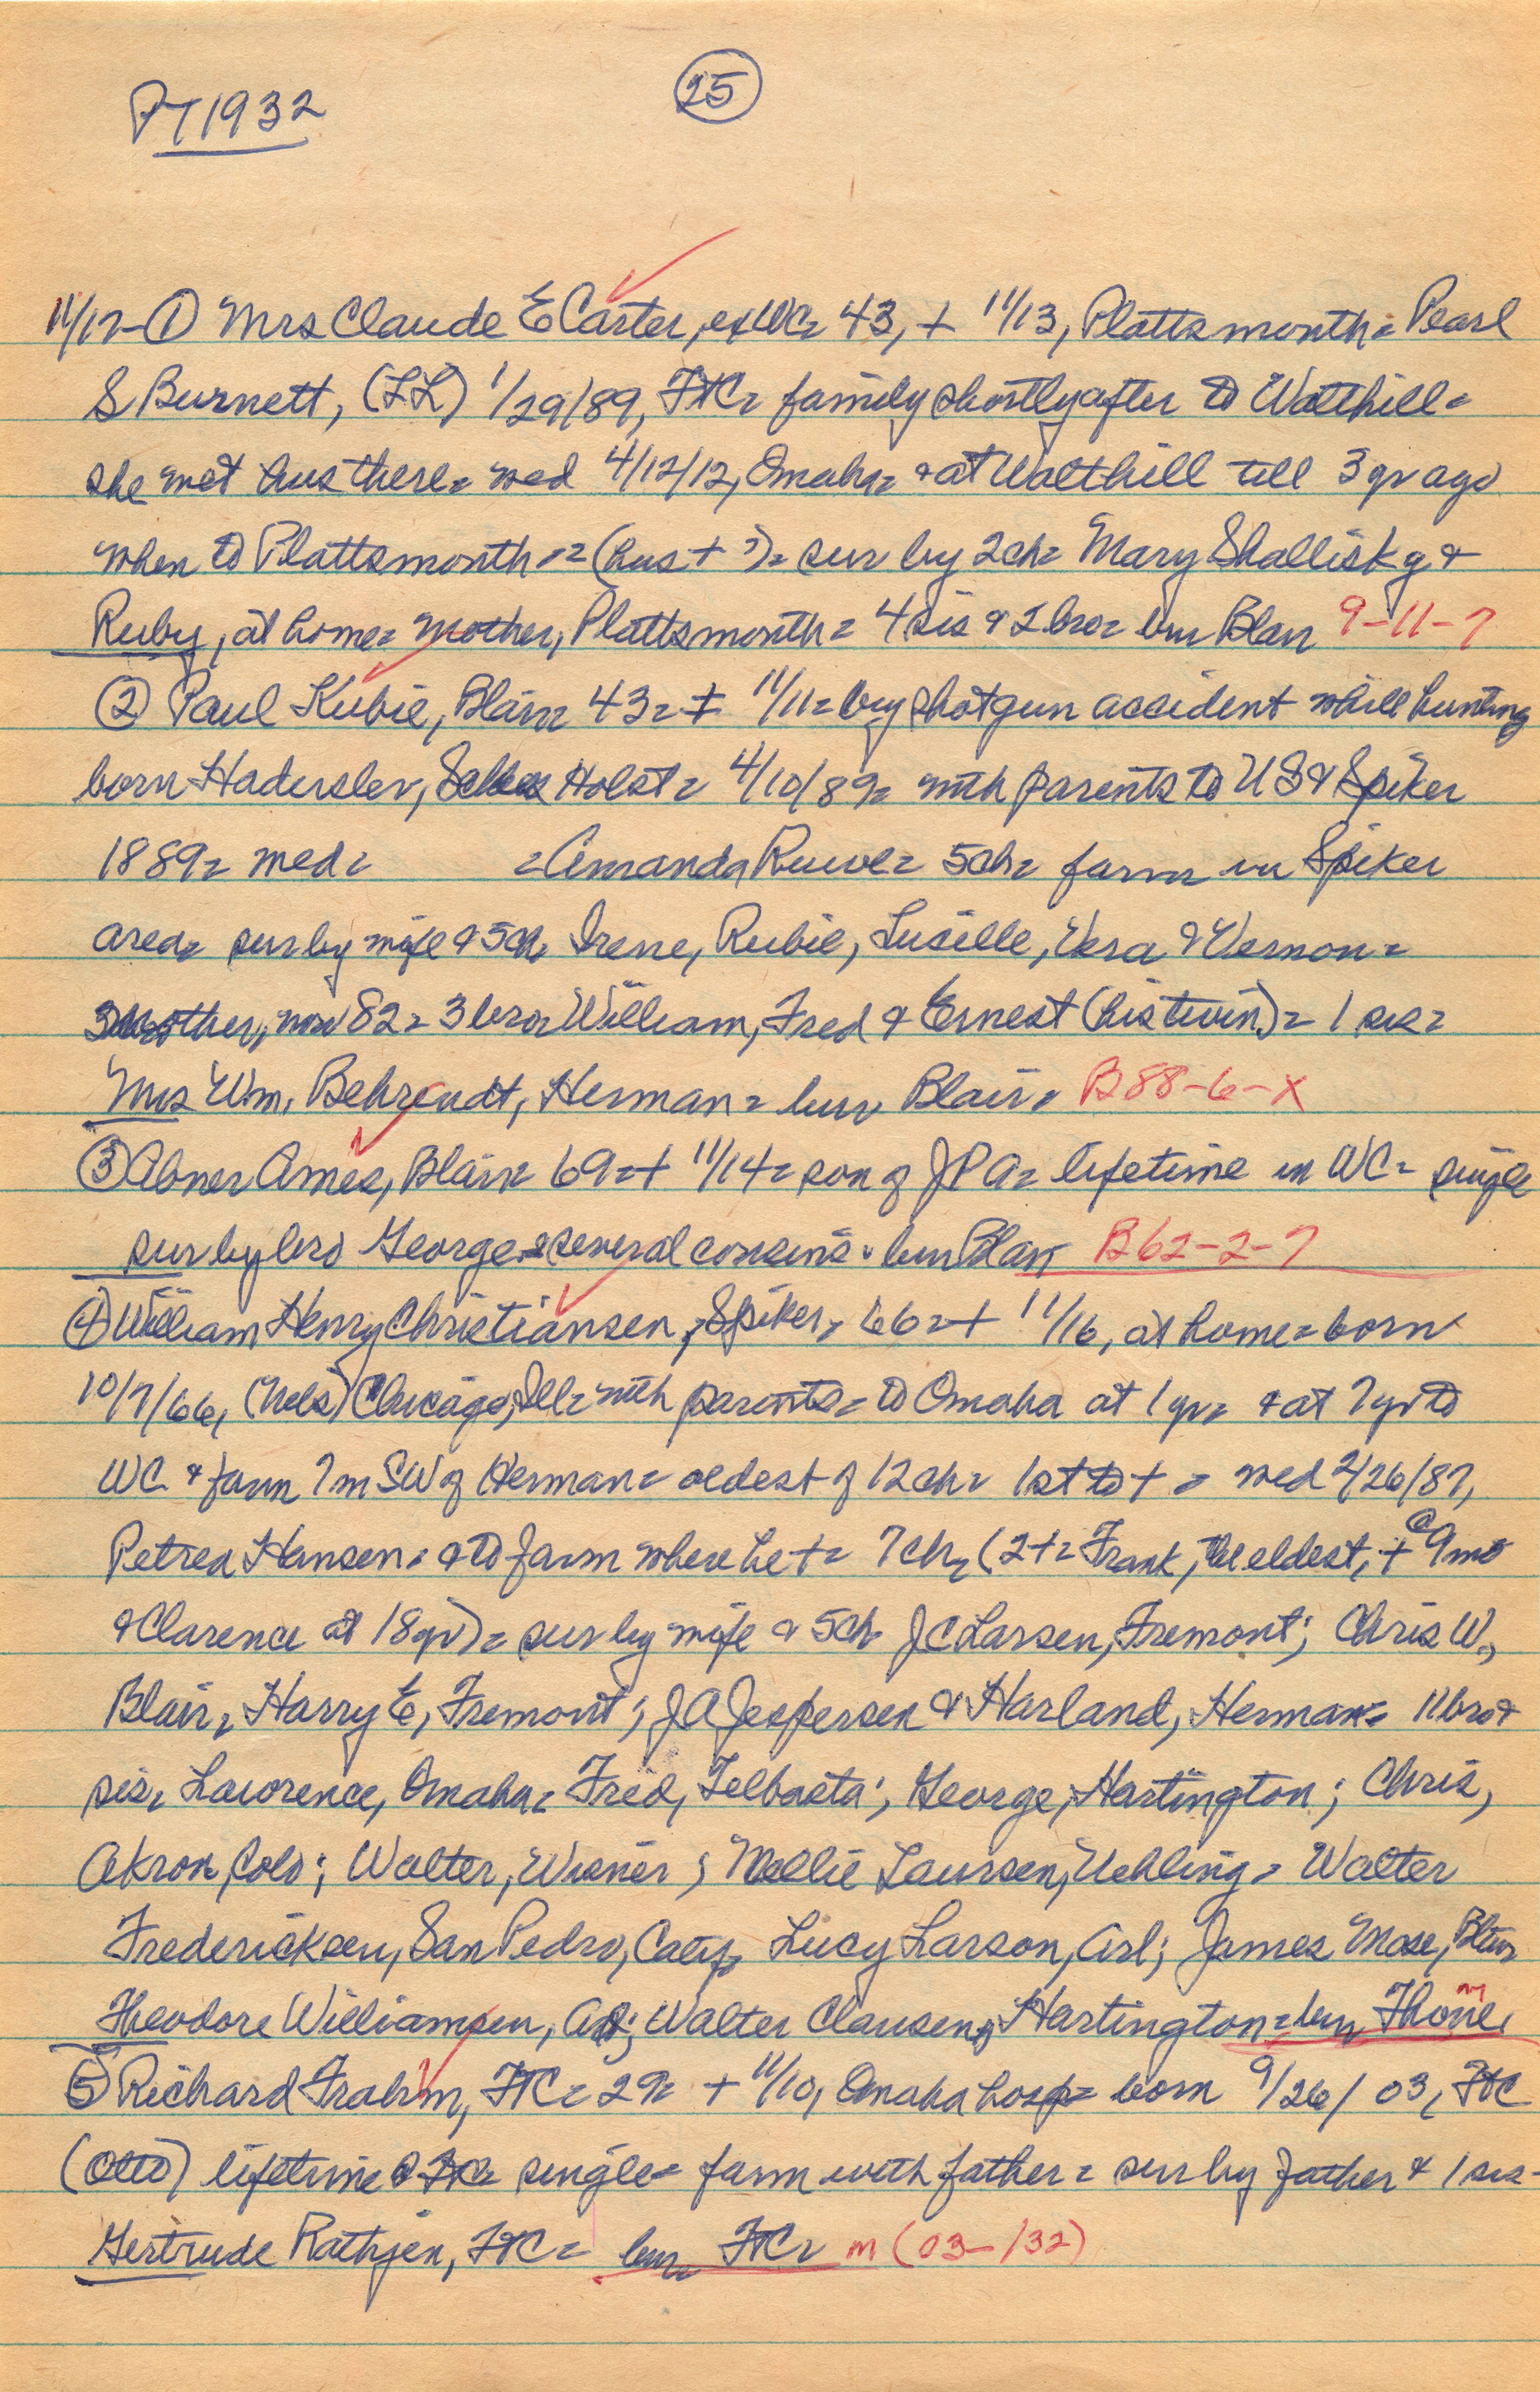 PT 1932
25
11/17-① Mrs Claude E Carter, ex WC= 43, + 11/13, Plattsmouth= Pearl
S Burnett, (LL) 1/29/89, FTC= family shortly after to Walthill=
she met hus there= wed 4/12/12, Omaha= & at Walthill till 3 yr ago
when to Plattsmouth= (hus + ?)= sur by 2ch= Mary Shallisky &
Ruby, at home= mother, Plattsmouth= 4 sis & 2 bro= bur Blair 9-11-7
② Paul Kubie, Blair= 43= + 11/11= by shotgun accident while hunting
born Haderslev, Holst= 4/10/89= with parents to US & Spiker
1889= wed= =Amanda Ruwe= 5ch= farm in Spiker
area= sur by wife & 5ch Irene, Rubie, Lucille, Vera & Vernon=
mother, now 82= 3 bro= William, Fred & Ernest (his twin)= 1 sis=
Mrs Wm. Behrendt, Herman= bur Blair= B88-6-X
③ Abner Ames, Blair= 69=+ 11/14= son of JPA= lifetime in WC= single
sur by bro George & several cousins= bur Blair B62-2-7
④ William Henry Christiansen, Spiker, 66=+ 11/16, at home= born
10/7/66, (Nels) Chicago, Ill= with parents= to Omaha at 1 yr= & at 7 yr to
WC & farm 7m SW of Herman= oldest of 12 ch= 1st to + = wed 2/26/87,
Petrea Hansen= & to farm where he += 7ch= (2+= Frank, the eldest, + @ 9 mo
& Clarence at 18 yr)= sur by wife & 5ch JC Larsen, Fremont; Chris W.,
Blair, Harry E, Fremont; JA Jespersen & Harland, Herman= 11 bro &
sis= Lawrence, Omaha= Fred, Telbasta; George, Hartington; Chris,
Akron, Colo; Walter, Wisner; Mellie Laursen, Uehling= Walter
Fredericksen, San Pedro, Calif= Lucy Larson, Arl; James Mose, Blair
Theodore Williamsen, Arl; Walter Clausen, Hartington= bur Thone, m
⑤ Richard Frahm, FTC= 29= + 11/10, Omaha hosp= born 9/26/03, FTC
(Otto) lifetime @ FTC= single= farm with father= sur by father & 1 sis-
Gertrude Rathjen, FTC= bur FTC= m (03-/32)